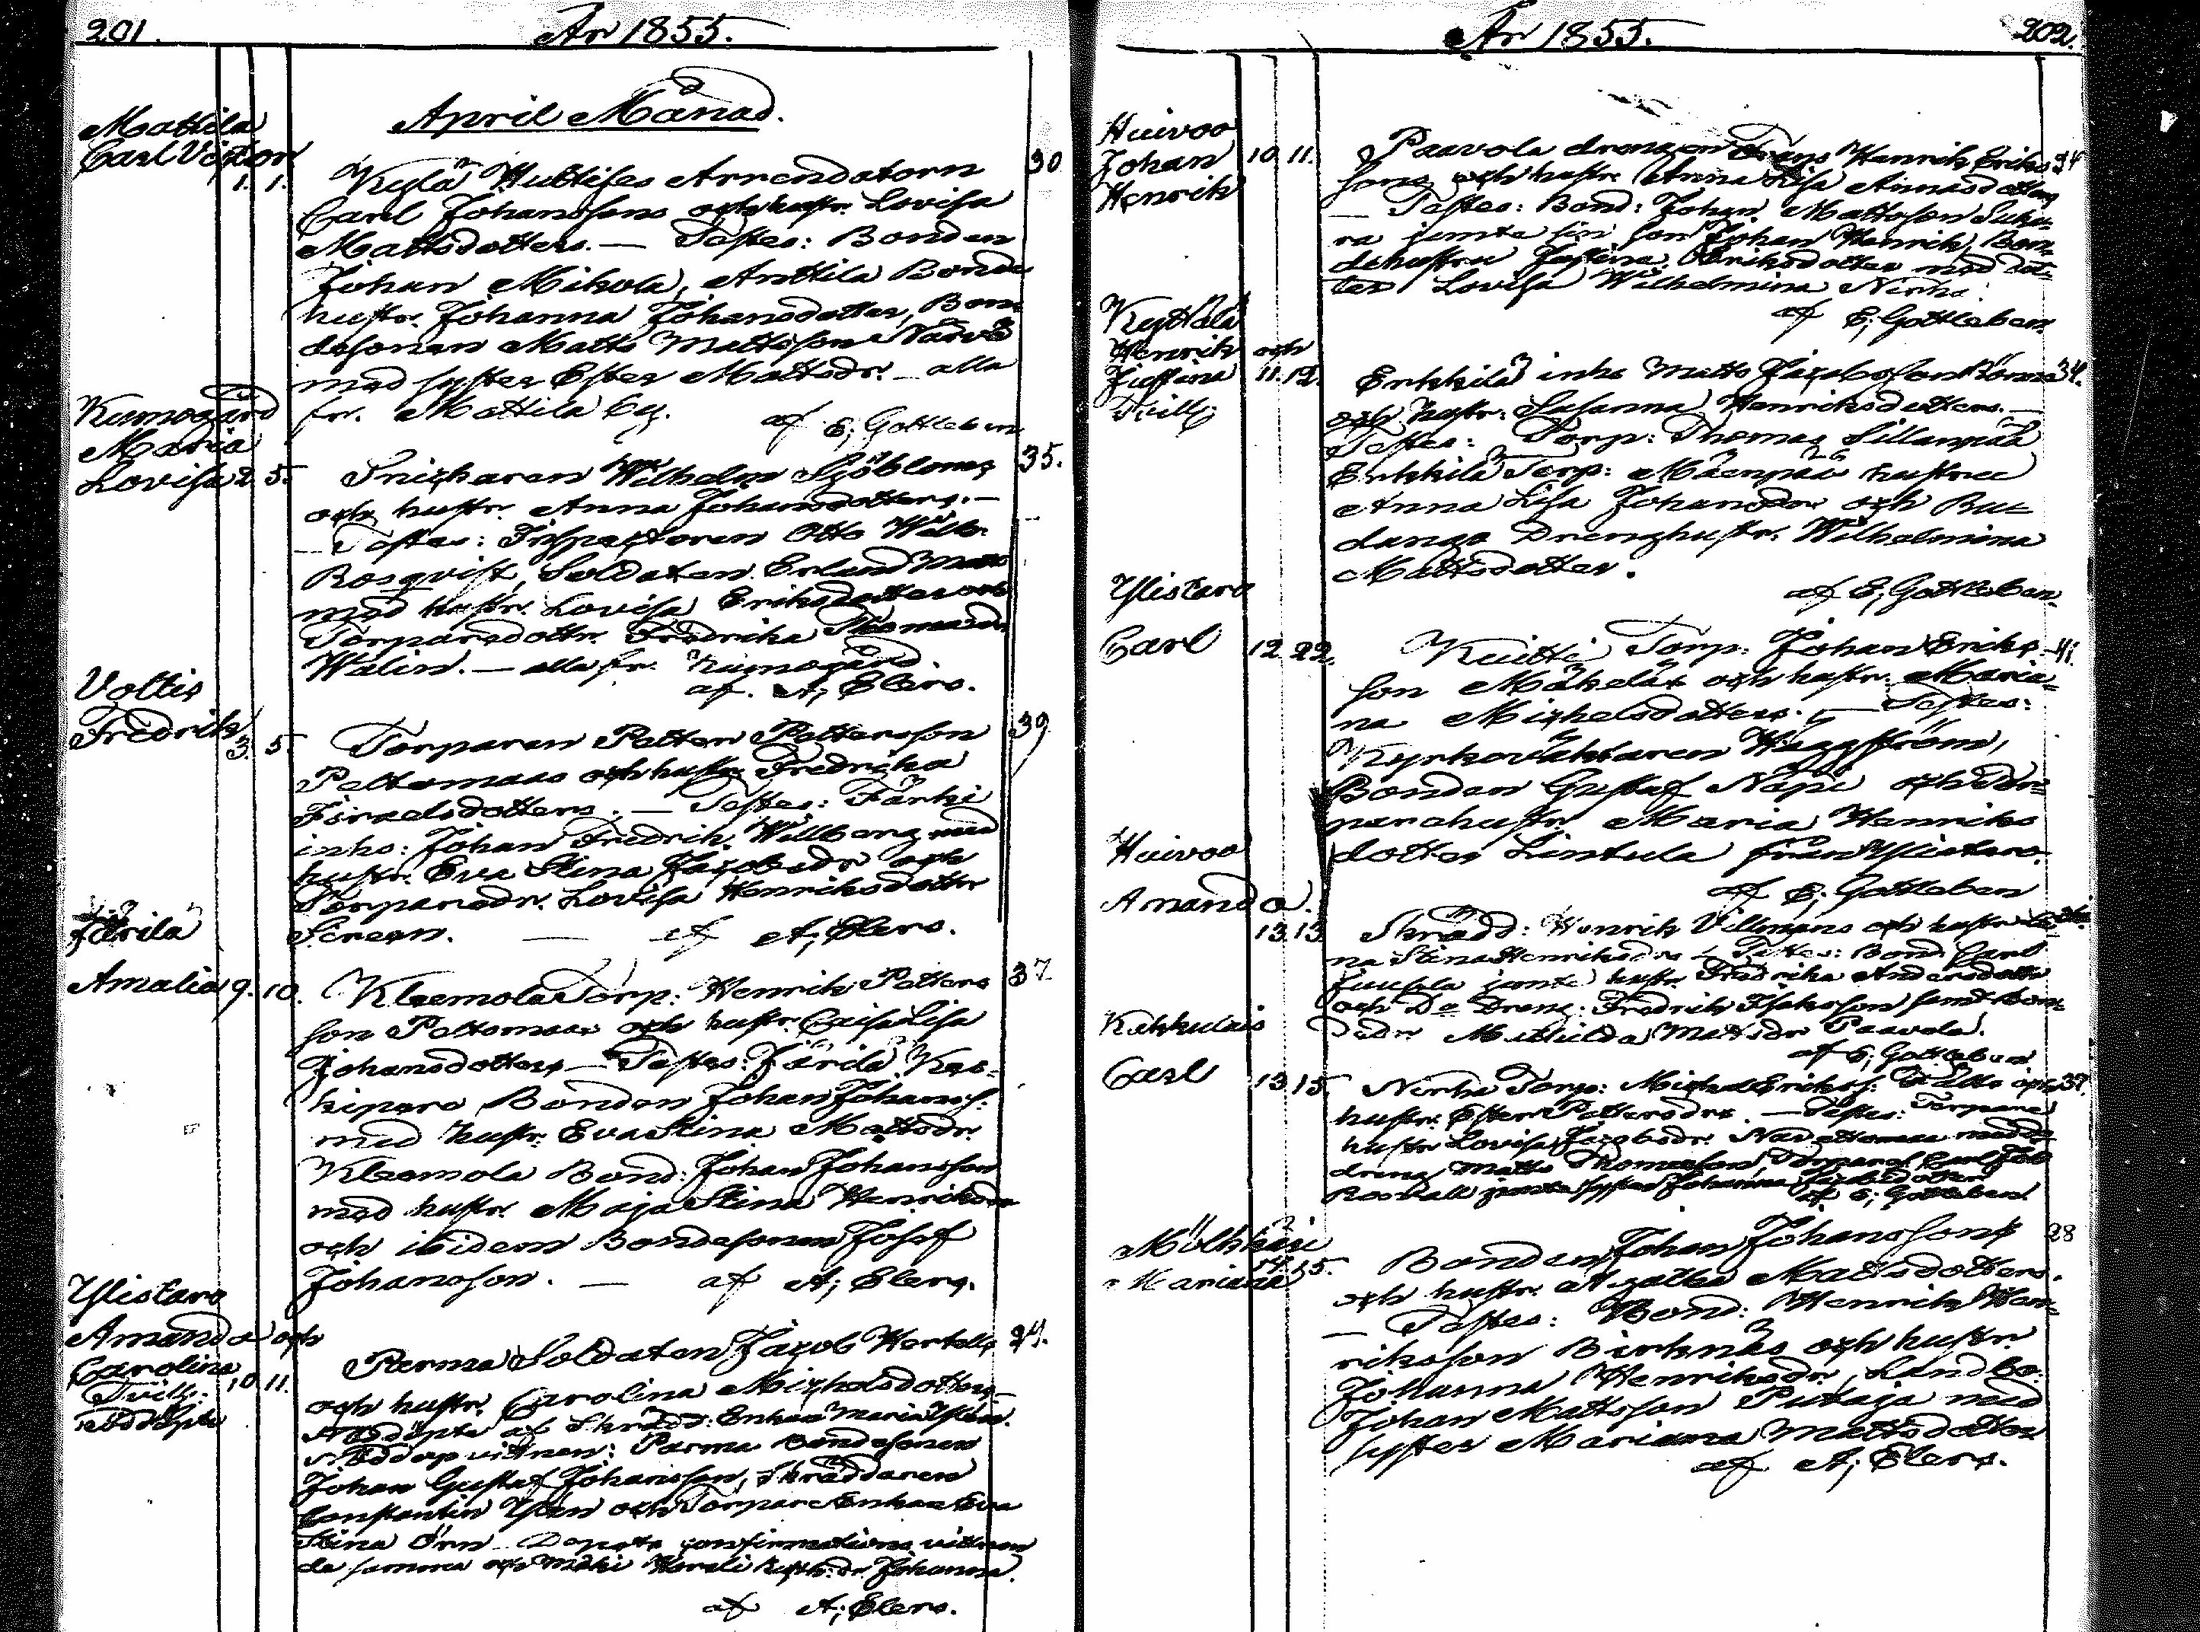 201.
År 1855.
April Månad.
Mattila
Carl Victor
1. 1.
Kylä Huttises Arrendatorn
30
Carl Johanssons och hustr. Lovisa
Mattsdotters. — Testes: Bonden
Johan Mikola, Anttila Bonde
hustr. Johanna Johansdotter, Bon-
desonen Matts Mattsson Närvä
med syster Ester Mattsdr. — alla
fr. Mattila by.
af E; Gottleben
Kumogård
Maria
Lovisa 2. 5.
Snickaren Wilhelm Sjöbloms
35.
och hustr. Anna Johansdotters. —
— Testes: Inspectoren Otto Wilh.
Rosqvist, Soldaten Erland
med hustr. Lovisa Eriksdotter och
Torparedottr. Fredrika Thomasdr
Walin. — alla fr. Kumogård.
af. A; Elers.
Voltis
Fredrik
3. 5.
Torparen Petter Pettersson
39
Peltomaas och hustr. Fredrika
Israelsdotters. — Testes: Färki
inhs: Johan Fredrik Willberg med
hustr. Eva Stina Jacobsdr och
Torparedr. Lovisa Henriksdotter
Sireen. — af A; Elers.
Järilä
Amalia 9. 10.
Kleemola Torp: Henrik Petters
37.
son Peltomaas och hustr. Caisa Lisa
Johansdotters — Testes: Järilä Kas-
kipero Bonden Johan Johanss:
med hustr. Eva Stina Mattsdr.
Kleemola Bond: Johan Johansson
med hustr. Maja Stina Henriksdr
och ibidem Bondesonen Josef
Johansson. — af A; Elers.
Ylistaro
Amanda och
Carolina
Tvill. 10. 11.
Nöddöpte
Parma Soldaten Jacob Hertells
29.
och hustr. Carolina Michelsdotters —
Nöddöpte af Skrädd: Enkan Maria Ysten.
Nöddop vittnen: Parma Bondesonen
Johan Gustaf Johansson, Skräddaren
Constantin Ysten och Torpare Enkan Eva
Stina Örn. Dopets confirmations vittnen
de samma och Mäki Horeli Johanna.
af A; Elers.
År 1855.
202.
Huivoo
Johan 10. 11.
Henrik
Paavola drengen Frans Henrik Eriks-
34
sons och hustr. Anna Lisa Annasdotters
— Testes: Bond: Johan Mattsson Suku-
ra jemte sin son Johan Henrik, Bon-
dehustru Justina Eriksdotter med dot-
ter Lovisa Wilhelmina Nirha.
af E; Gottleben
Kyttälä
Henrik och
Josefina 11. 12.
Tvill.
Erkkilä inhs Matts Jacobsson
34.
och hustr. Susanna Henriksdotters. —
Testes: Torp: Thomas Sillanpää
Erkkilä Torp: Mäenpää hustru
Anna Lisa Johansdr och Ru-
danga Drenghustr. Wilhelmina
Mattsdotter.
af E; Gottleben
Ylistaro
Carl 12. 22.
Kuitti Torp: Johan Eriks-
41.
son Mäkeläs och hustr. Maria-
na Michelsdotters. — Testes:
Kyrkoväktaren Häggström,
Bonden Gustaf Näpi och Tor-
parehustr. Maria Henriks
dotter Lintula från Ylistaro.
af E; Gottleben
Huivoo
Amanda.
13. 13.
Skrädd: Henrik Villmans och hustr.
na Stina Henriksdrs — Testes: Bond: Carl
Juusela jemte hustr. Fredrika Andersdotter
och Dräng: Fredrik Isaksson samt Bon-
dedr. Mathilda Mattsdr Paavola.
af E; Gottleben
Kakkulais
Carl 13. 15.
Nirha Torp: Michel Erikss: och
37.
hustr. Ester Pettersdrs. — Testes: Torpare
hustr. Lovisa Jacobsdr. med
dreng Matts Thomasson Torparen Carl
Rosvall jemte syster Johanna Jacobsdotter
af E; Gottleben
Mölkkäri
Mariana 14. 15.
Bonden Johan Johanssons
28
och hustr. Agatha Mattsdotters.
— Testes: Bond: Henrik Hen-
riksson Birknäs och hustr.
Johanna Henriksdr, Landbo:
Johan Mattsson Putaja med
syster Mariana Mattsdotter
af A; Elers.